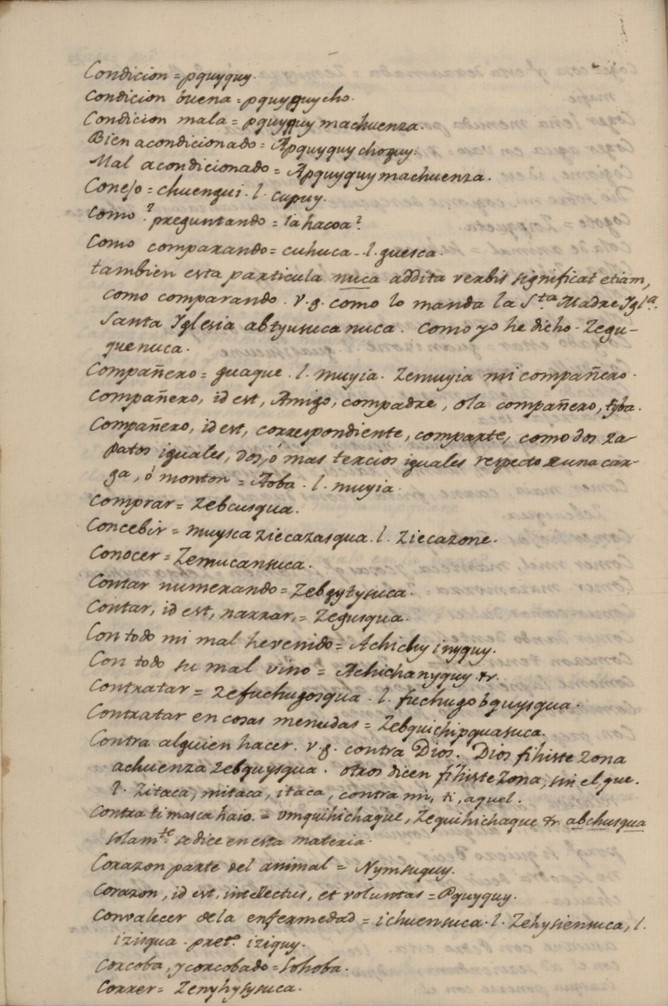 Condicion = pquyquy.
Condicion buena = pquyquycho.
Condicion mala = pquyquy machuenza.
Bien acondicionado = Apquyquy choquy.
Mal acondicionado = Apquyquymachuenza.
Conejo = chuengui. l. cupuy.
Como? preguntando = iahacoa?
Como comparando = cuhuca. l. guesca.
tambien esta particula nuca addita verbis significat etiam,
como comparando. v.g. como lo manda la Sta. Madre Iglª.
Santa Yglesia abtyusucanuca. Como yo he dicho. Zegu-
quenuca.
Compañero = guaque. l. muyia. Zemuyia mi compañero.
Compañero, id est, Amigo, compadre, ola compañero, tyba.
Compañero, id est, correspondiente, comparte, como dos za-
patos iguales, dos, ó mas tercios iguales respecto de una car-
ga, ó monton = Aoba. l. muyia.
Comprar = Zebcusqua.
Concebir = muysca ziecazasqua. l. Ziecazone.
Conocer = Zemucansuca.
Contar numerando = Zebgytysuca.
Contar, id est, narrar, = Zegusqua.
Con todo mi mal he venido = Achichy inyquy.
Con todo su mal vino = Achichanyquy &c.
Contratar = zefuchugosqua. l. fuchugo bquysqua.
Contratar en cosas menudas = Zebquichipquasuca.
Contra alguien hacer. v.g. contra Dios. Dios fihiste zona
achuenza zebquysqua. otros dicen fihiste zona, sin el que.
l. Zitaca, mitaca, itaca, contra mi, ti, aquel.
Contra ti masca haio. = vmquihichaque, Zequihichaque &c abchusqua
solamte. se dice en esta materia.
Corazon parte del animal = Nymsuquy.
Corazon, id est, intellectus, et voluntas = Pquyquy.
Convalecer de la enfermedad = ichuensuca. l. Zehysiensuca, l.
izisqua. pretº. iziquy.
Corcoba, y corcobado = Iohoba.
Correr = Zenyhyzysuca.